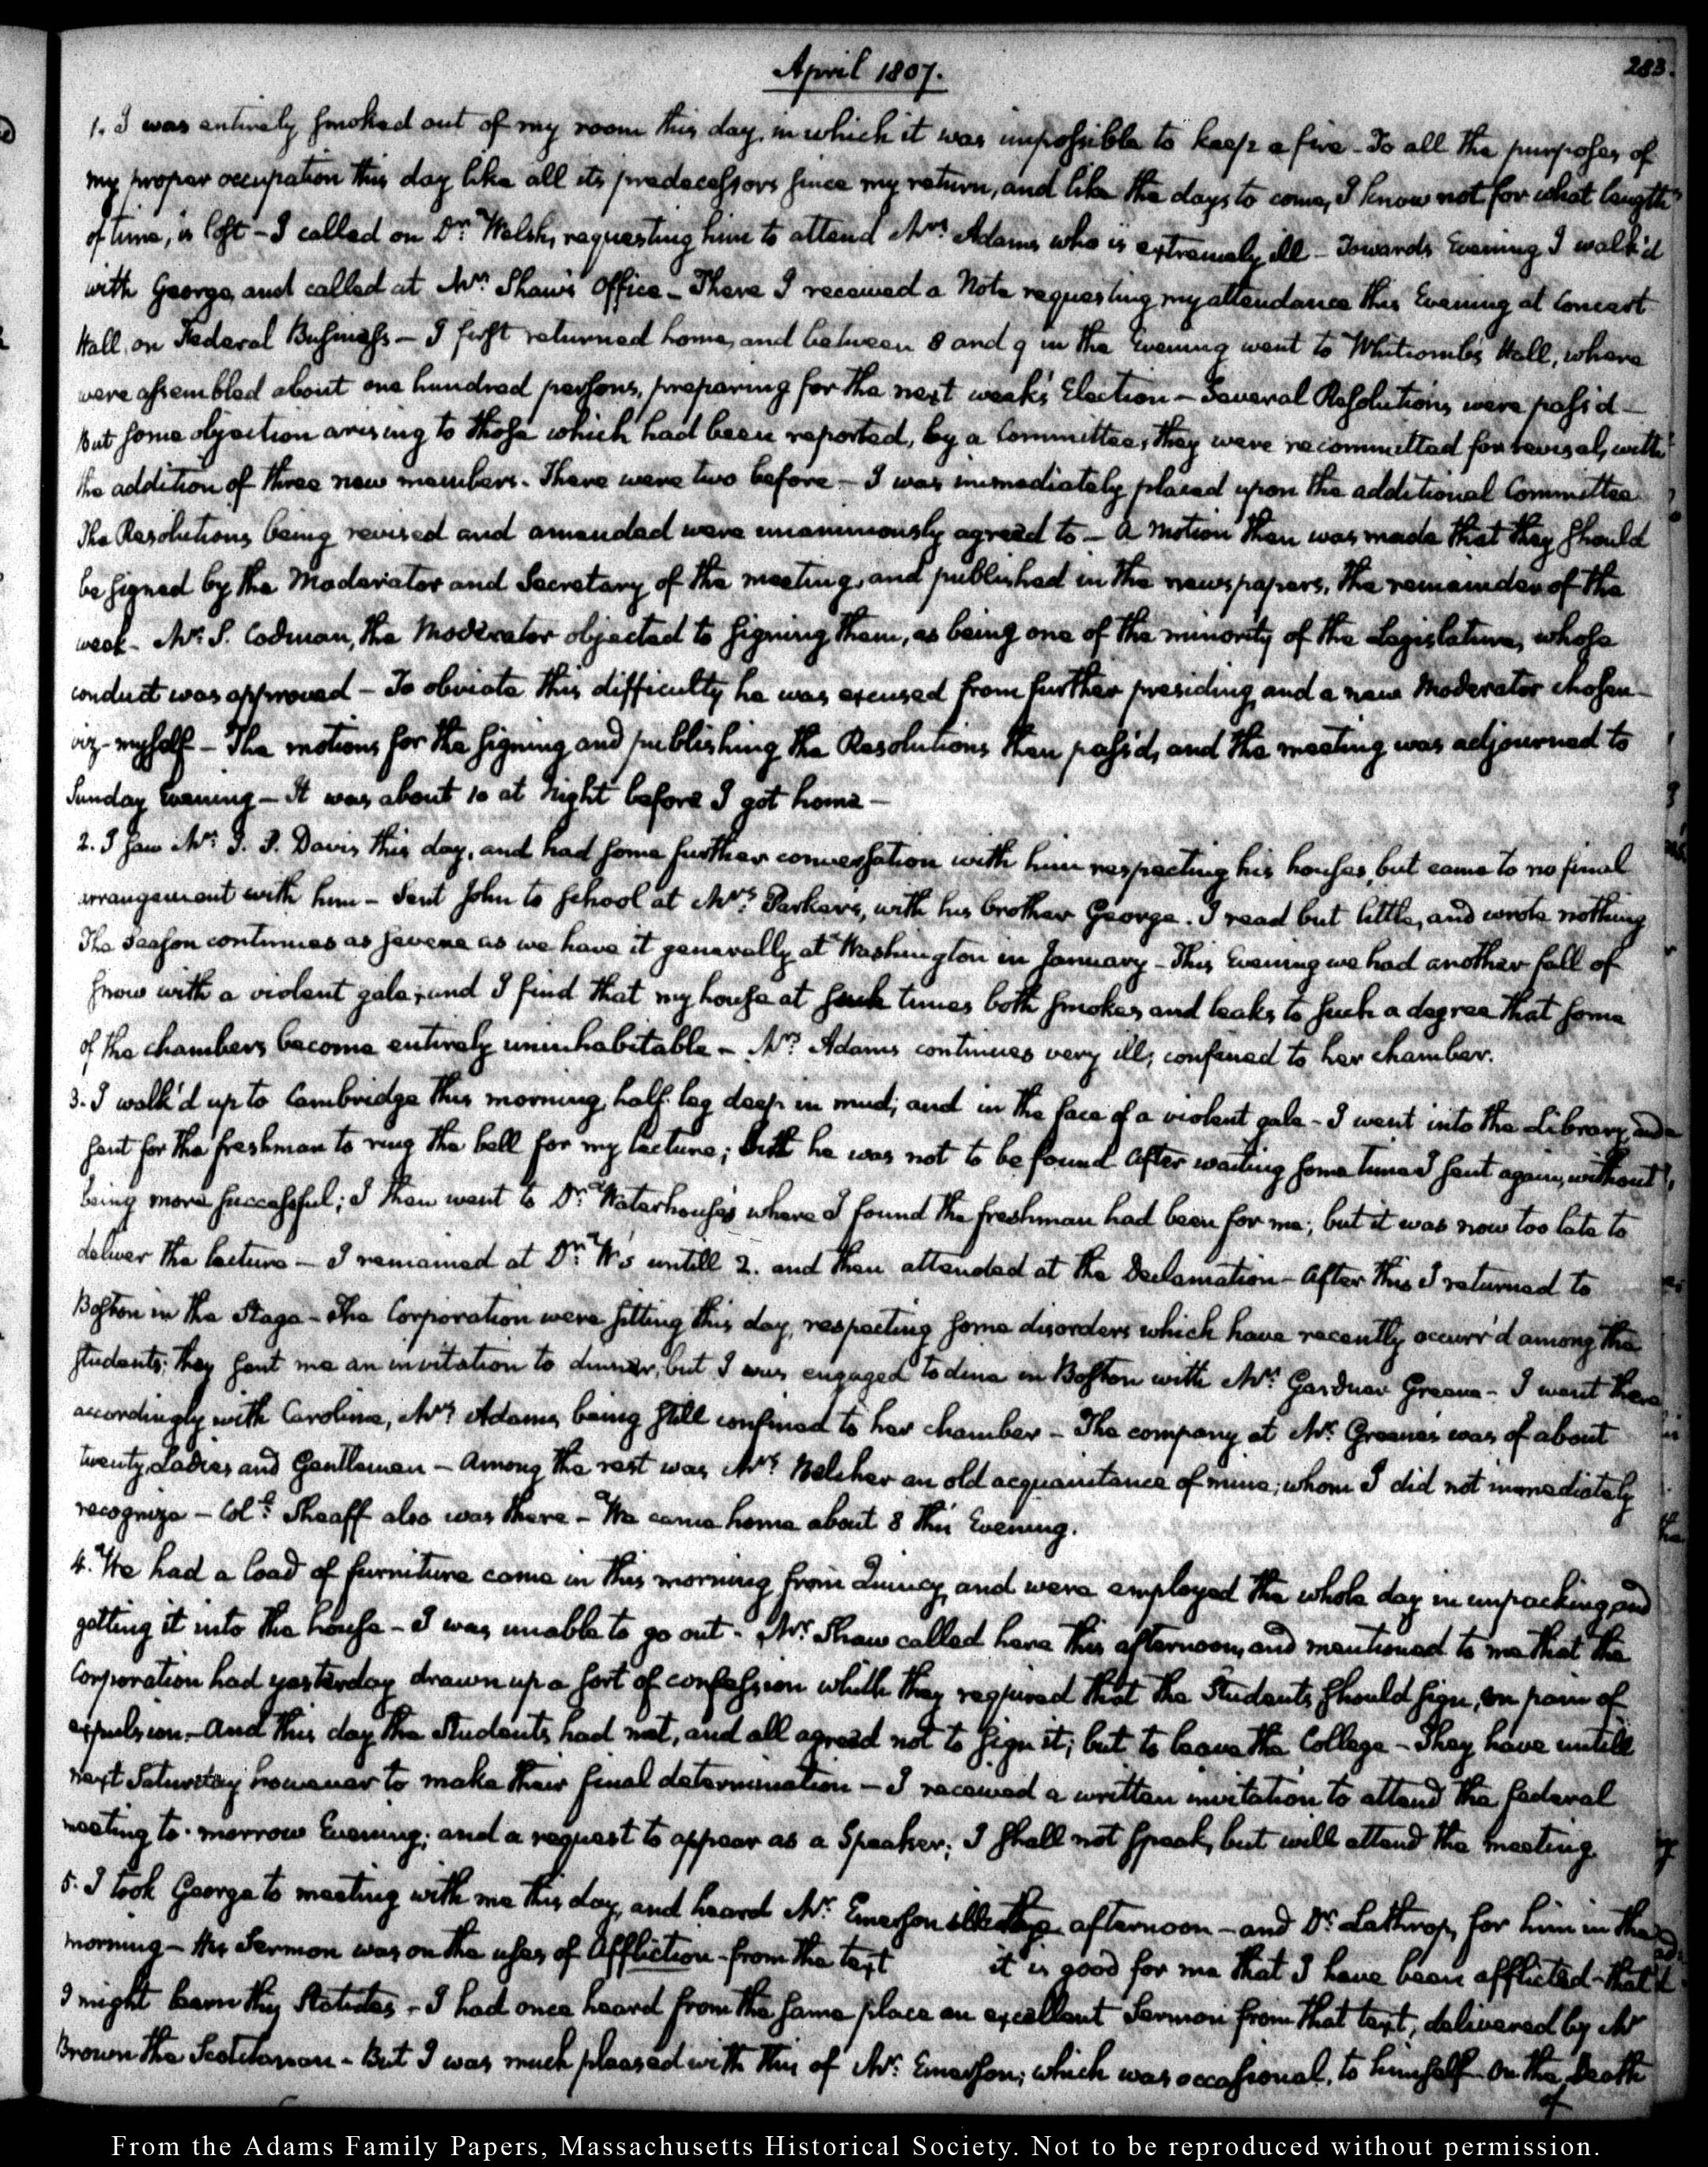 April 1807.
283.
1. I was entirely smoked out of my room this day, in which it was impossible to keep a fire - To all the purposes of
my proper occupation this day like all its predecessors since my return, and like the days to come, I know not for what length
of time, is lost - I called on Dr. Welsh, requesting him to attend Mrs. Adams who is extremely ill - Towards Evening I walk'd
with George, and called at Mr. Shaw's Office - There I received a Note requesting my attendance this Evening at Concert
Hall, on Federal Business - I first returned home, and between 8 and 9 in the Evening went to Whitcomb's Hall, where
were assembled about one hundred persons, preparing for the next week's Election - Several Resolutions were pass'd -
But some objection arising to those which had been reported, by a Committee, they were recommitted for revisal, with
the addition of three new members. There were two before - I was immediately placed upon the additional Committee
The Resolutions being revised and amended were unanimously agreed to - A motion then was made that they should
be signed by the Moderator and Secretary of the meeting, and published in the newspapers, the remainder of the
week - Mr. S. Codman, the Moderator objected to signing them, as being one of the minority of the Legislature, whose
conduct was approved - To obviate this difficulty he was excused from further presiding, and a new Moderator chosen -
viz - myself - The motions for the signing and publishing the Resolutions then pass'd, and the meeting was adjourned to
Sunday Evening - It was about 10 at Night before I got home -
2. I saw Mr. I. P. Davis this day, and had some further conversation with him respecting his houses, but came to no final
arrangement with him - Sent John to school at Mrs. Parker's, with his brother George. I read but little, and wrote nothing
The season continues as severe as we have it generally at Washington in January - This Evening we had another fall of
snow with a violent gale; and I find that my house at such times both smokes, and leaks to such a degree that some
of the chambers become entirely uninhabitable - Mrs. Adams continues very ill; confined to her chamber.
3. I walk'd up to Cambridge this morning, half-leg deep in mud; and in the face of a violent gale - I went into the Library, and
sent for the freshman to ring the bell for my lecture; but he was not to be found After waiting some time I sent again, without
being more successful; I then went to Dr. Waterhouse's where I found the freshman had been for me; but it was now too late to
deliver the lecture - I remained at Dr. W's untill 2. and then attended at the Declamation - After this I returned to
Boston in the Stage - The Corporation were sitting this day, respecting some disorders which have recently occurr'd among the
students; they sent me an invitation to dinner, but I was engaged to dine in Boston with Mr. Gardner Greene - I went there
accordingly with Caroline, Mrs. Adams, being still confined to her chamber - The company at Mr. Greene's was of about
twenty Ladies and Gentlemen - Among the rest was Mrs. Belcher an old acquaintance of mine, whom I did not immediately
recognize - Coll. Sheaff also was there - We came home about 8 this Evening.
4. We had a load of furniture come in this morning from Quincy, and were employed the whole day in unpacking, and
getting it into the house - I was unable to go out - Mr. Shaw called here this afternoon, and mentioned to me that the
Corporation had yesterday drawn up a sort of confession which they required that the Students should sign, on pain of
expulsion - And this day the Students had met, and all agreed not to sign it; but to leave the College - They have untill
next Saturday however to make their final determination - I received a written invitation to attend the federal
meeting to-morrow Evening; and a request to appear as a Speaker; I shall not speak, but will attend the meeting.
5. I took George to meeting with me this day, and heard Mr. Emerson afternoon - and Dr. Lathrop, for him in the
morning - His Sermon was on the uses of Affliction - from the text it is good for me that I have been afflicted - that
I might learn thy Statutes - I had once heard from the same place an excellent Sermon from that text, delivered by Mr
Brown the Scotchman - But I was much pleased with this of Mr. Emerson; which was occasional, to himself on the Death
of
From the Adams Family Papers, Massachusetts Historical Society. Not to be reproduced without permission.